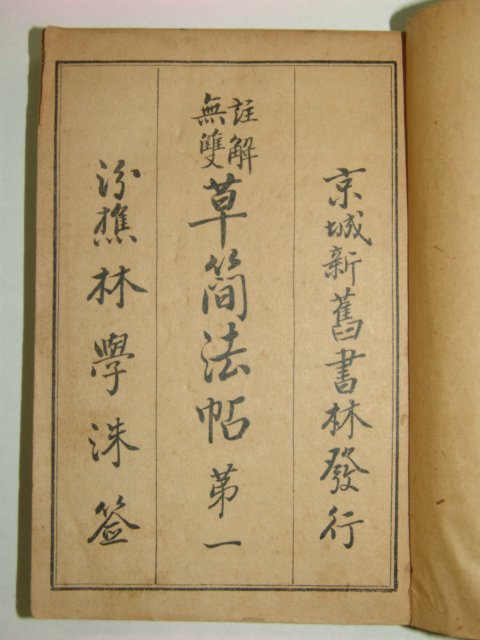 京城新舊書林發行
註解
無雙
草簡法帖 第一
汾樵林學洙签